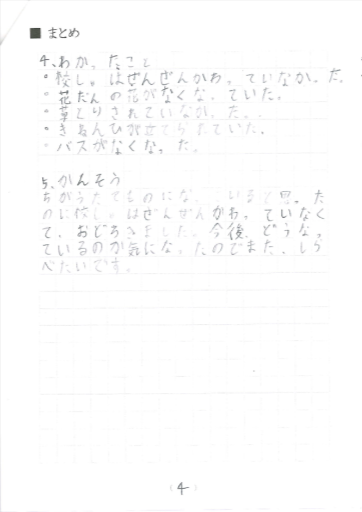 ■ まとめ
4、わかったこと
・校しゃはぜんぜんかわっていなかった。
・花だんの花がなくなっていた。
・草とりされていなかった。
・きねんひが立てられていた。
・バスがなくなった。
5、かんそう
ちがうたてものになっ いると思った
のに校しゃはぜんぜんかわっていなく
て、おどろきました。今後、どうなっ
ているのか気になったのでまた、しら
べたいです。
4